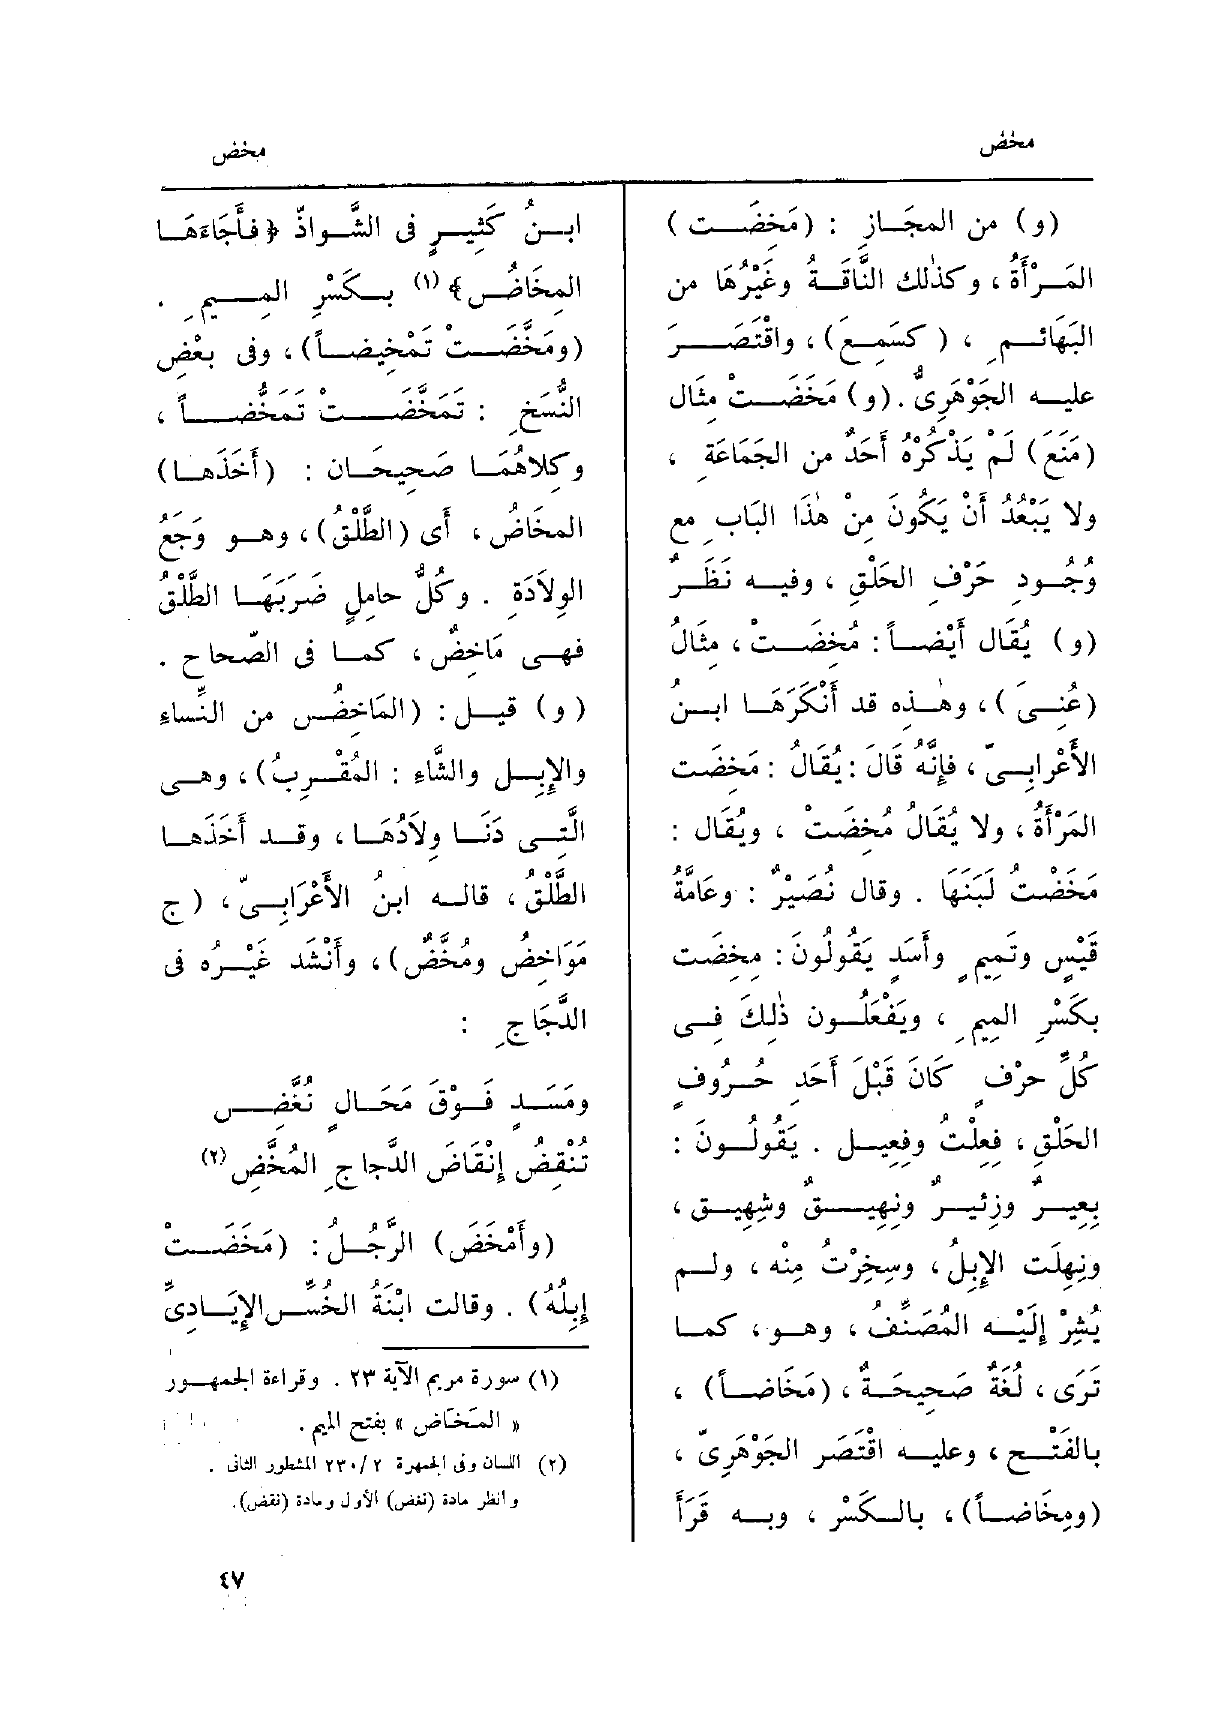 مخض
مخض
(و) من المجَاز : (مَخِضَت)
المَرْأَةُ ، وكذٰلك النَّاقَةُ وغَيْرُهَا من
البَهَائم ، (كسَمِعَ) ، واقْتَصَرَ
عليه الجَوْهَرِىُّ . (و) مَخَضَتْ مِثَال
(مَنَعَ) لَمْ يَذْكُرْهُ أَحَدٌ من الجَمَاعَةِ ،
ولا يَبْعُدُ أَنْ يَكُونَ مِنْ هٰذَا البَابِ مع
وُجُودِ حَرْفِ الحَلْقِ ، وفيه نَظَرٌ
(و) يُقَال أَيْضاً : مُخِضَتْ ، مِثَالُ
(عُنِىَ) ، وهٰذه قد أَنْكَرَهَا ابنُ
الأَعْرابِىّ ، فإِنَّهُ قَالَ : يُقَالُ : مَخِضَت
المَرْأَةُ ، ولا يُقَالُ مُخِضَتْ ، ويُقَال :
مَخَضْتُ لَبَنَهَا . وقال نُصَيْرٌ : وعَامَّةُ
قَيْسٍ وتَمِيمٍ وأَسَدٍ يَقُولُونَ : مِخِضَت
بكَسْرِ المِيمِ ، ويَفْعَلُون ذٰلِكَ فِى
كُلِّ حرْفٍ كَانَ قَبْلَ أَحَدِ حُرُوفِ
الحَلْقِ ، فِعِلْتُ وفِعِيل . يَقُولُونَ :
بِعِيرٌ وزِئِيرٌ ونِهِيقٌ وشِهِيق ،
ونِهِلَت الإِبِلُ ، وسِخِرْتُ مِنْه ، ولم
يُشِرْ إِلَيْه المُصَنِّفُ ، وهو ، كما
تَرَى ، لُغَةٌ صَحِيحَةٌ ، (مَخَاضاً) ،
بالفَتْح ، وعليه اقْتَصَر الجَوْهَرِىّ ،
(ومِخَاضاً) ، بالكَسْرِ ، وبه قَرَأَ
ابنُ كَثِيرٍ فى الشَّواذّ ﴿فأَجَاءَهَا
المِخَاضُ﴾ (١) بكَسْرِ المِيم .
(ومَخَّضَتْ تَمْخِيضاً) ، وفى بعْضِ
النُّسَخِ : تَمَخَّضَتْ تمَخُّضاً ،
وكلاهُمَا صَحِيحَان : (أَخَذَهَا)
المخَاضُ ، أَى (الطَّلْقُ) ، وهو وَجَعُ
الوِلاَدَةِ . وكُلُّ حامِلٍ ضَرَبَهَا الطَّلْقُ
فهى مَاخِضٌ ، كما فى الصّحاح .
(و) قيل : (المَاخِضُ من النِّساءِ
والإِبِل والشَّاءِ : المُقْرِبُ) ، وهى
الَّتِى دَنَا وِلاَدُهَا ، وقد أَخَذَهَا
الطَّلْقُ ، قاله ابنُ الأَعْرَابِىّ ، (ج
مَوَاخِضُ ومُخَّضٌ) ، وأَنْشَد غَيْرُه فى
الدَّجَاجِ :
ومَسَدٍ فَوْقَ مَحَالٍ نُغَّضِ
تُنْقِضُ إِنْقَاضَ الدَّجاجِ المُخَّضِ (٢)
(وأَمْخَضَ) الرَّجُلُ : (مَخَضَتْ
إِبِلُهُ) . وقالت ابْنَةُ الخُسِّ الإِيَادِىِّ
(١) سورة مريم الآية ٢٣ . وقراءة الجمهور
« المَخاض » بفتح الميم .
(٢) اللسان وفى الجمهرة ٢ / ٢٣٠ المشطور الثانى .
وانظر مادة (نغض) الأول ومادة (نقض) .
٤٧